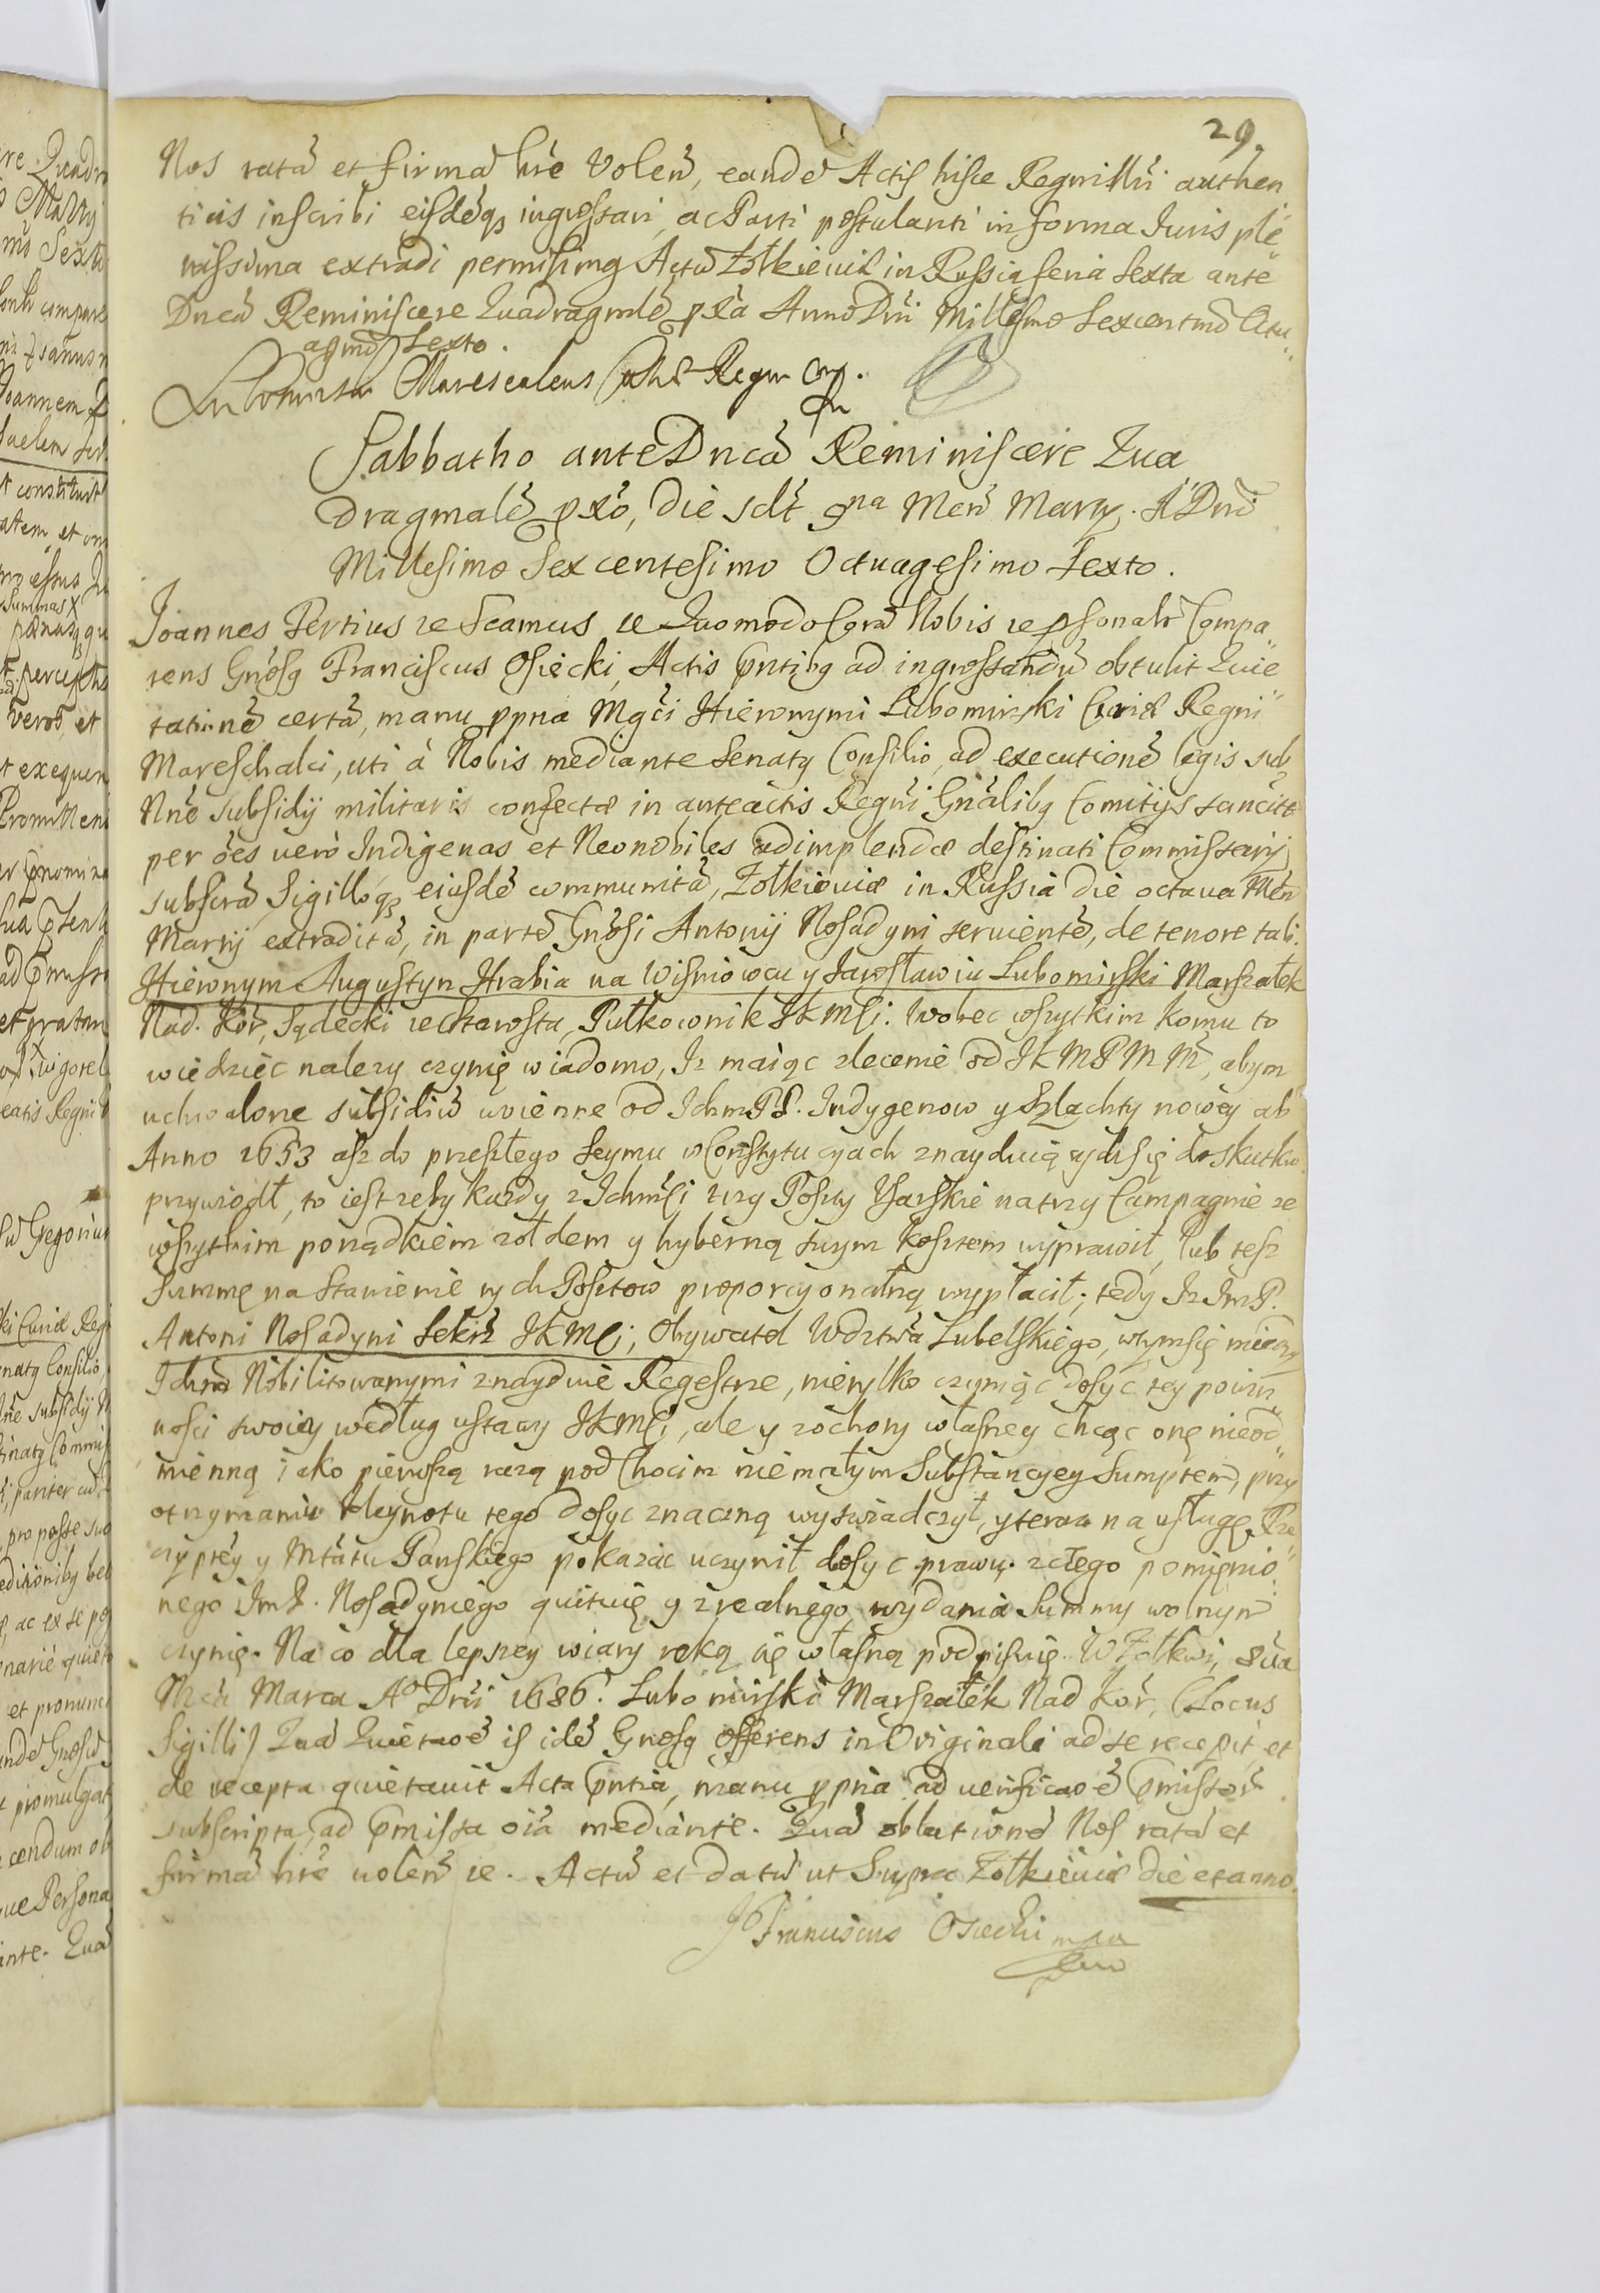 29.
Nos ratã et firmã hrẽ Volen, eandẽ Actis hisce Regni Nri authen
ticis inscribi eisdẽqꝫ ingrossari, ac Parti postulanti in forma Iuris ple
nissima extradi permisimꝰ Actũ Zołkieuiæ in Russia feria Sexta ante
Dncã Reminiscere Quadragmlẽ pxã Anno Dni Millesimo Sexcentmõ Octu
agmõ Sexto.
Lubomirski Marescalcus Curiæ Regni
Sabbatho ante Dncã Reminiscere Qua
dragmalẽ pxõ, die sclt 9na Men Martÿ. A Dni
Millesimo Sexcentesimo Octuagesimo Sexto.
Joannes Tertius etc Scamus etc Quomodo Corã Nobis etc psonalr Compa
rens Gnosꝰ Franciscus Osiecki, Actis pntibꝰ ad ingrossandũ obtulit Quie
tationẽ certã, manu ppria Mgci Hieronymi Lubomirski Curiæ Regni
Mareschalci, uti à Nobis mediante Senatꝰ Consilio, ad executionẽ legis sub
Nnẽ subsidÿ militaris confectæ in anteactis Regni Gnalibꝰ Comitijs sancitæ
per oẽs verò Indigenas et Neonobiles adimplendæ destinati Commissarij
subscrã Sigilloqꝫ eiusdẽ communitã, Zołkiewiæ in Russia die octaua Men
Martij extraditã, in partẽ Gnosi Antonij Nosadyni seruientẽ, de tenore tali.
Hieronym Augustyn Hrabia na Wisniowcu y Jarosławiu Lubomirski Marszałek
Nad. Kor, Sądecki etc Starosta, Pułkownik JKMCi. Wobec wszytkim komu to
wiedziec nalezy czynię wiadomo, Iz maiąc zlecenie od JKMPMM, abym
uchwalone subsidiũ wienne od IchmPP. Indygenow y Szlachty nowey ab
Anno 1653 asz do przeszłego Seymu w Constytucyach znayduiących się do skutku
przywiodł, to iest zeby kazdy z IchmCi trzy Poszty Usarskie na trzy Campagnie ze
wszytkim porządkiem zołdem y hyberną swym kosztem wyprawił, lub tesz
Summę na stawienie tych Posztow proporcyonalną wypłacił; tedy Iz ImP.
Antoni Nosadyni Sekrz JKMCi, Obywatel Wdztwa Lubelskiego, w tym się miedzy
Ichm Nobilitowanymi znaydwie Regestrze, nietylko czyniąc dosyc tey powin
nosci swoiey według ustawy JKMCi, ale y z ochoty własney chcąc onę nieod
mienną iako pierwszą razą pod Chocim niemałym Substancyey Sumptem, przy
otrzymaniu kleynotu tego dosyc znaczną wyswiadczył, y teraz na usługę Rze
czyptey y Mtatu Panskiego pokazac uczynił dosyc prawu. z czego pomienio
nego ImP. Nosadyniego quituię y z realnego wydania Summy wolnym
czynię. Na co dla lepszey wiary ręką się własną podpisuię. W Zołkwi, 8ua
Msca Marca Ao Dni 1686. Lubomirski Marszałek Nad Kor, (Locus
Sigilli) Quã Quietaoẽ is idẽ Gnosꝰ offerens in Originali ad se recepit, et
de recepta quietauit Acta pntia, manu ppria ad verificaoẽ pmissor
subscripta, ad pmissa oĩa mediante. Quã oblationẽ Nos ratã et
firmã hrẽ uolen etc. Actũ et datũ ut Supra Zołkiewiæ die et anno.
Franciscus Osiecki mpa